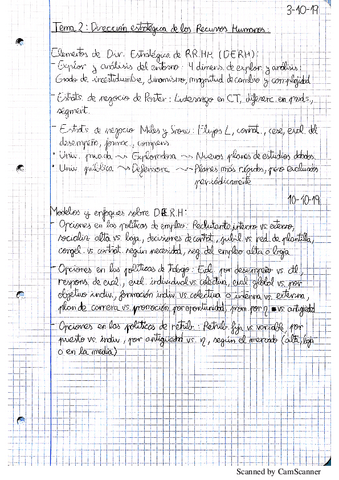 3-10-19
Tema 2: Dirección estratégica de los Recursos Humanos:
Elementos de Dir. Estratégica de RR.HH (DERH):
- Explor. y análisis del entorno: 4 dimens. de explor. y análisis:
Grado de incertidumbre, dinamismo, magnitud de cambio y complejidad
- Estrats. de negocio de Porter: Liderazgo en CT, diferenc. en prods.,
segment.
- Estrats. de negocio Miles y Snow: contrat., cese, eval. del
desempeño, formac., compens
· Univ. privada → Exploradora → Nuevos planes de estudios dobles.
· Univ. pública → Defensora → Planes más rígidos, pero evaluados
periódicamente
10-10-19
Modelos y enfoques sobre DERH:
- Opciones en las políticas de empleo: Reclutamto interno vs externo,
socializ. alta vs baja, decisiones de contrat., jubil. vs red. de plantilla,
congel. vs contrat. según necesidad, seg. del empleo alta o baja
- Opciones en las políticas de Trabajo: Eval. por desempeño vs
respons. de eval., eval. individual vs colectiva, eval. global vs por
objetivo indiv., formación indiv. vs colectiva o interna vs. externa,
plan de carrera vs promoción por oportunidad, prom. por vs antigüedad
- Opciones en las políticas de retrib.: Retrib. fija vs variable, por
puesto vs indiv., por antigüedad vs según el mercado (alta, baja
o en la media)
Scanned by CamScanner